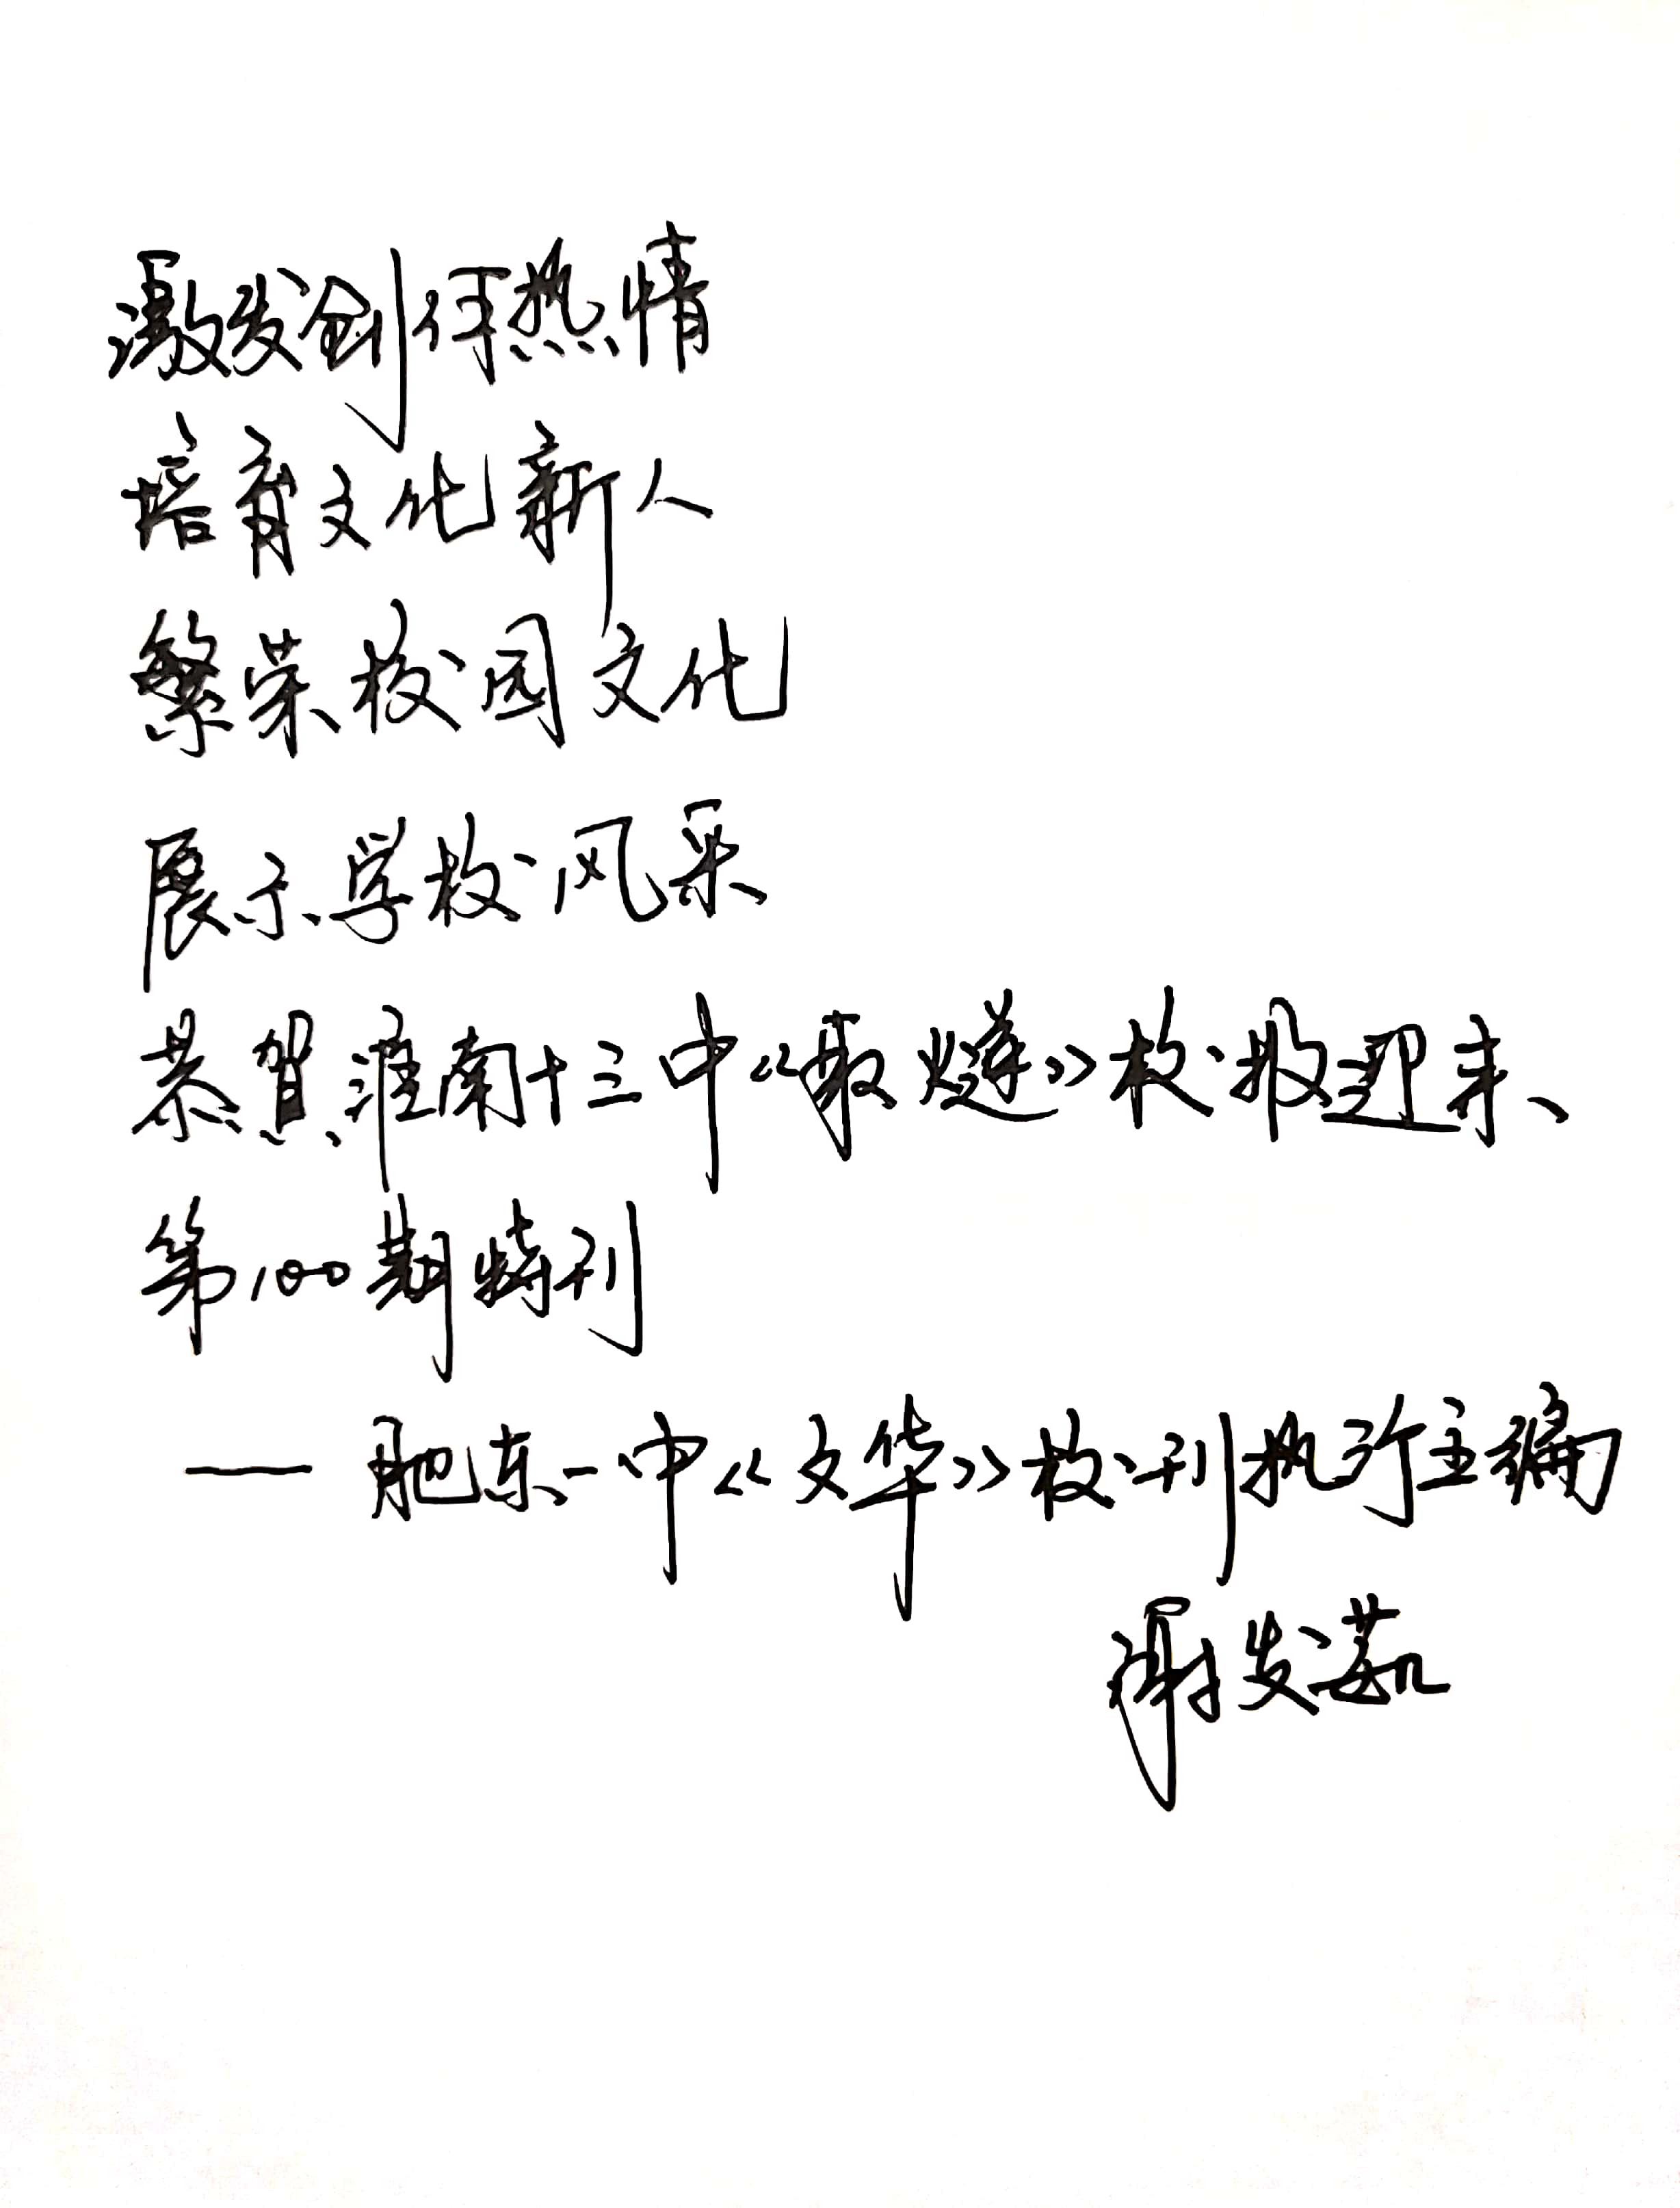 激发创作热情
培育文化新人
繁荣校园文化
展示学校风采
恭贺淮南十三中《取燧》校报迎来
第100期特刊
—肥东一中《文华》校刊执行主编
谢发茹